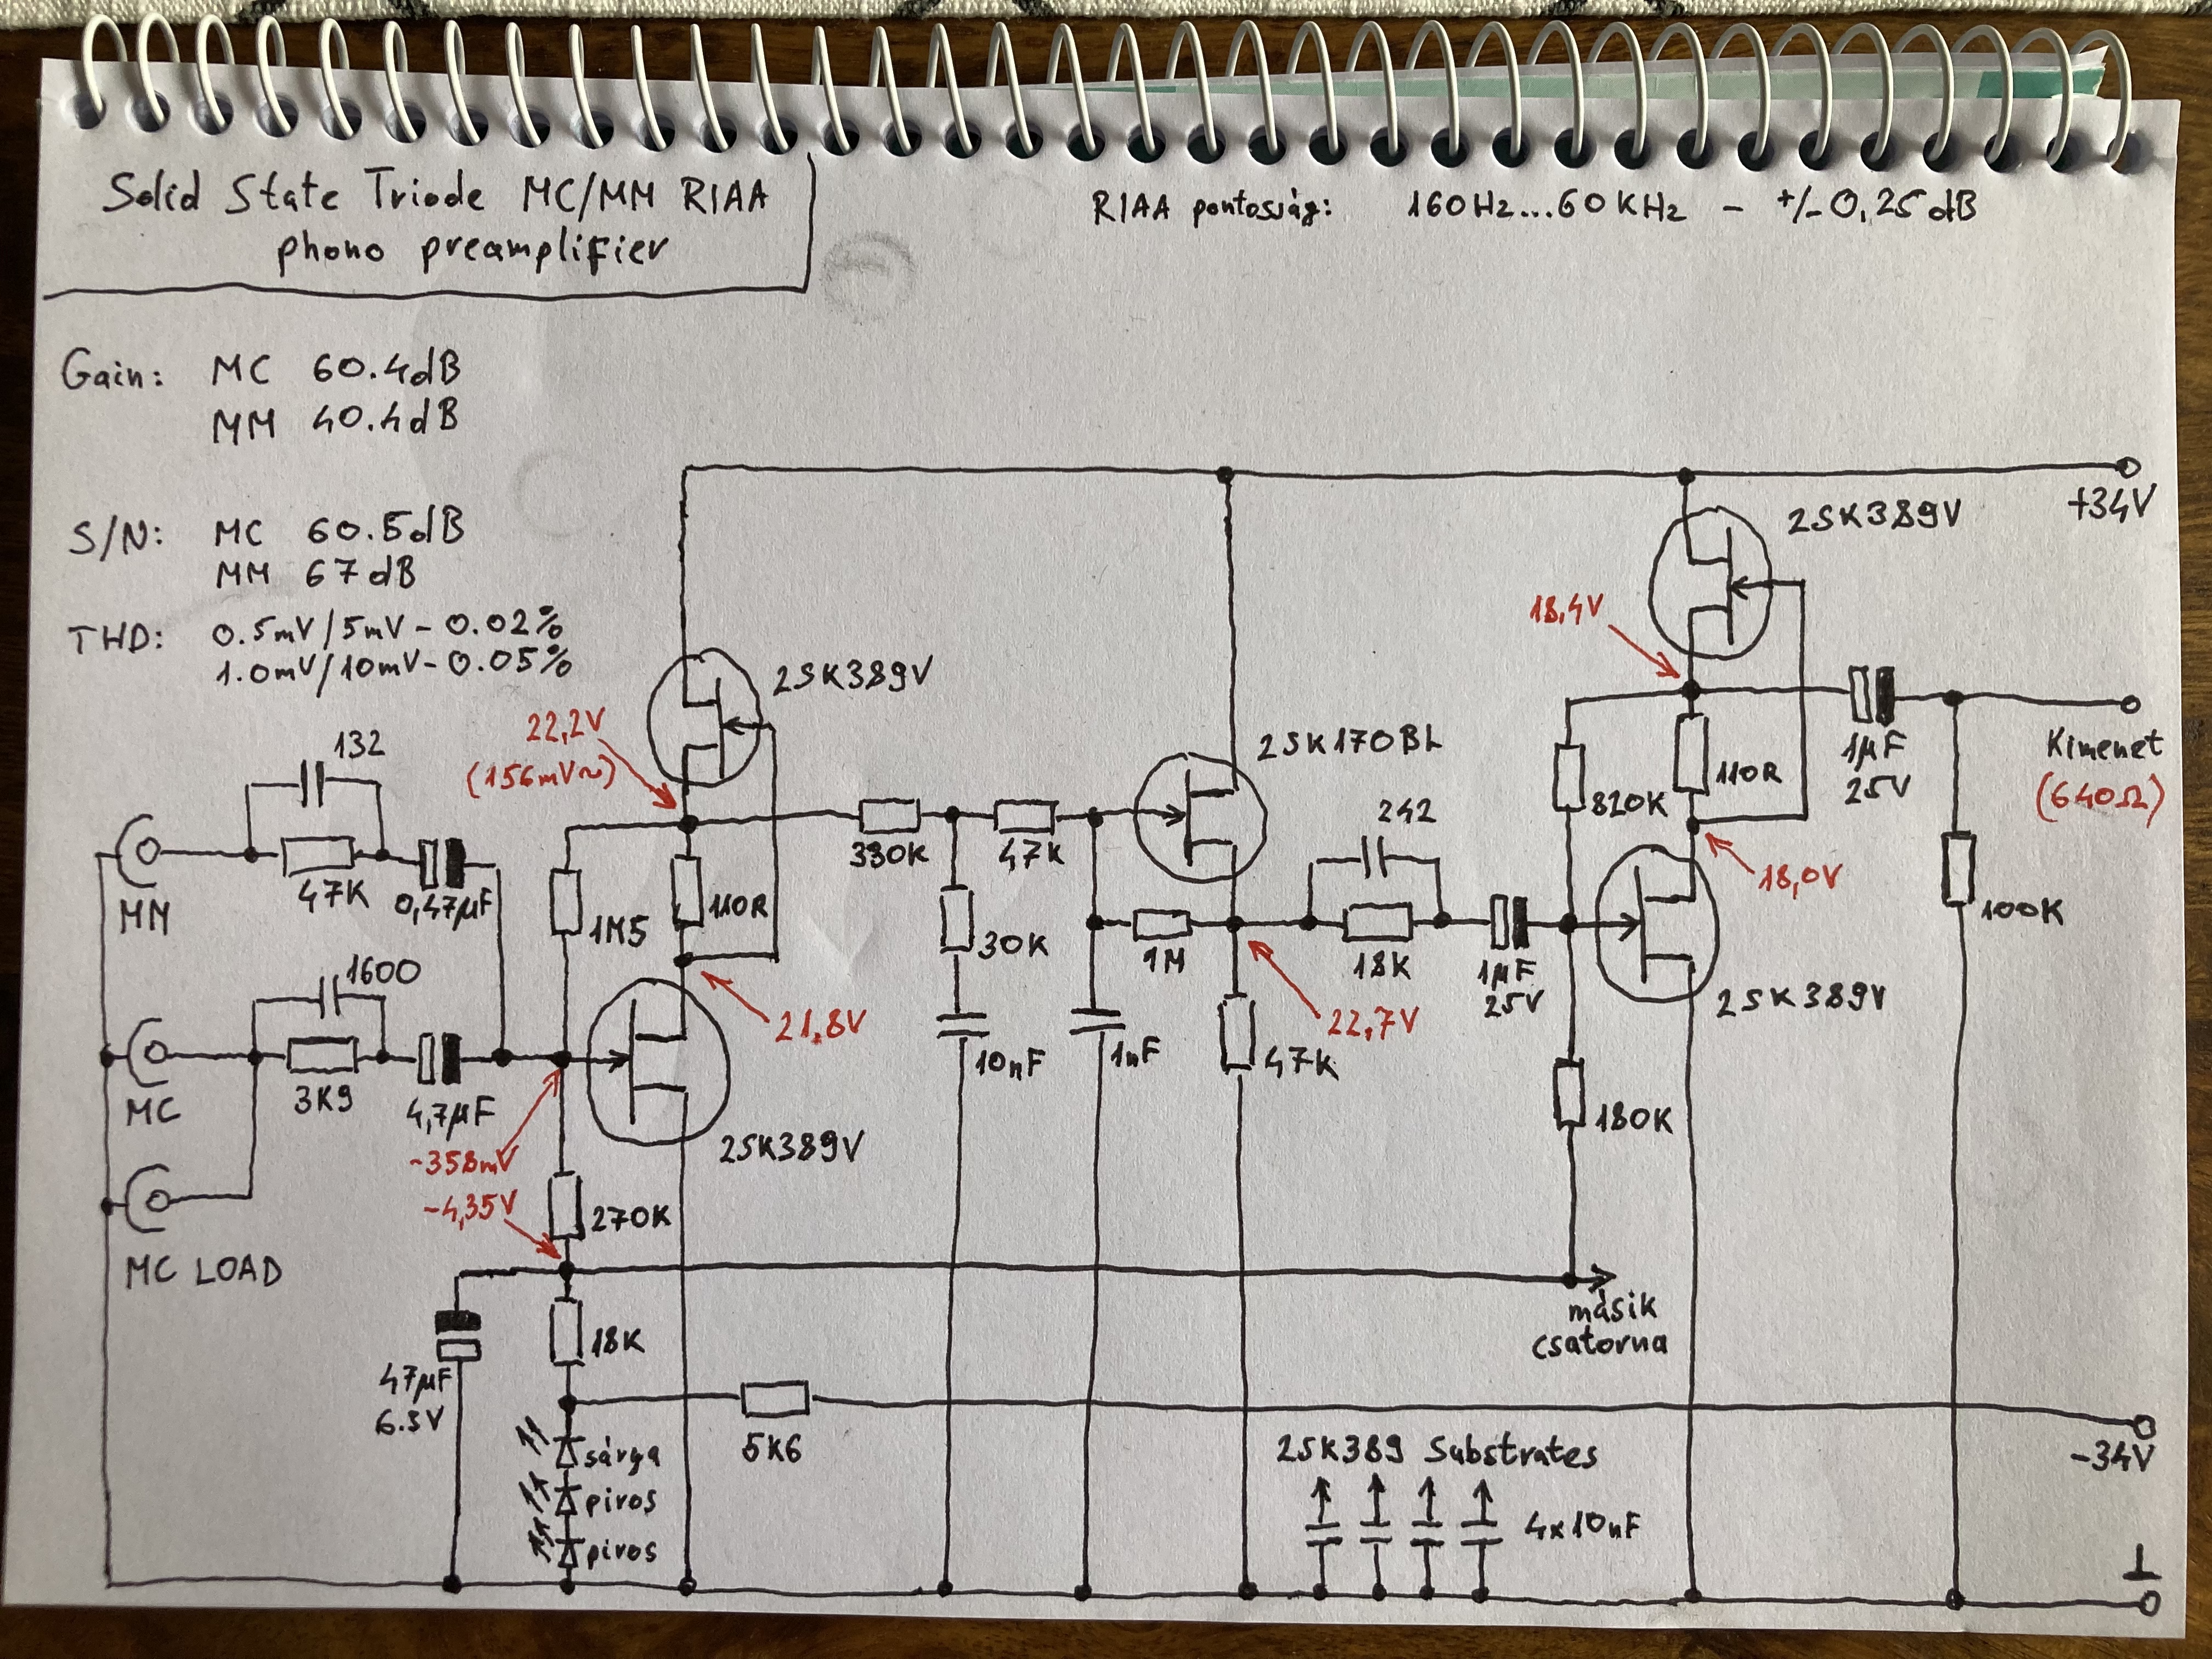 Solid State Triode MC/MM RIAA
phono preamplifier
RIAA pontosság: 160Hz...60KHz - +/-0,25dB
Gain: MC 60.4dB
MM 40.4dB
S/N: MC 60.5dB
MM 67dB
THD: 0.5mV/5mV-0.02%
1.0mV/10mV-0.05%
+34V
2SK389V
2SK389V
18,4V
22,2V
(156mV~)
2SK170BL
1µF
25V
Kimenet
(640Ω)
110R
820K
132
47K
0,47µF
MM
330K
47K
242
18,0V
100K
1M5
110R
30K
1M
18K
1µF
25V
2SK389V
1600
3K9
4,7µF
MC
21,8V
22,7V
10nF
1nF
47K
180K
2SK389V
-358mV
-4,35V
270K
MC LOAD
másik
csatorna
18K
47µF
6.3V
5K6
-34V
sárga
piros
piros
2SK389 Substrates
4x10nF